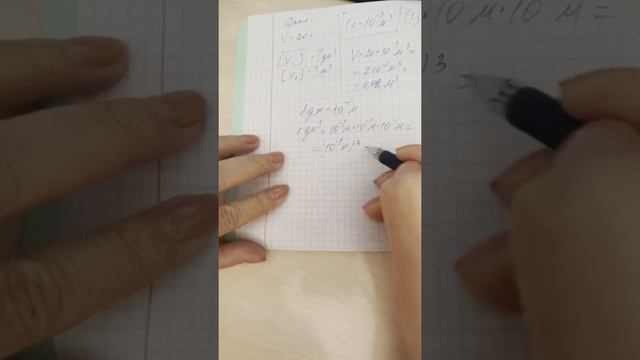 Дано:
V = 20 л
[V₁] - ? дм³
[V₂] - ? м³
1 л = 10⁻³ м³
V = 20 · 10⁻³ м³ =
= 2 · 10⁻² м³ =
= 0,02 м³
1 дм = 10⁻¹ м
1 дм³ = 10⁻¹ м · 10⁻¹ м · 10⁻¹ м =
= (10⁻¹ м)3